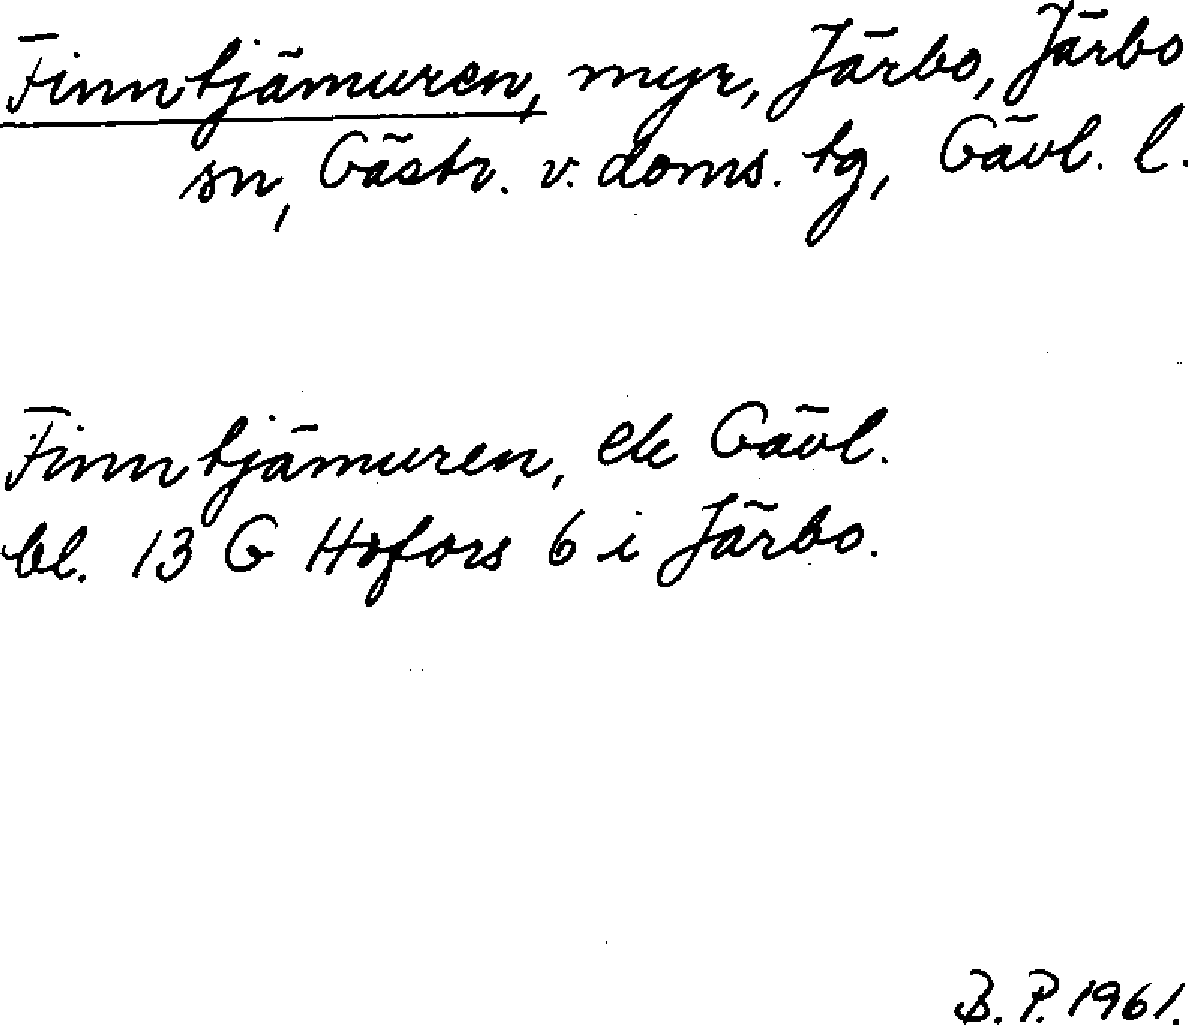 Finntjämuren, myr, Järbo, Järbo
sn, Gästr. v. doms. tg, Gävl. l.
Finntjämuren, ek Gävl.
bl. 13 G Hofors 6 i Järbo.
B. P. 1961.